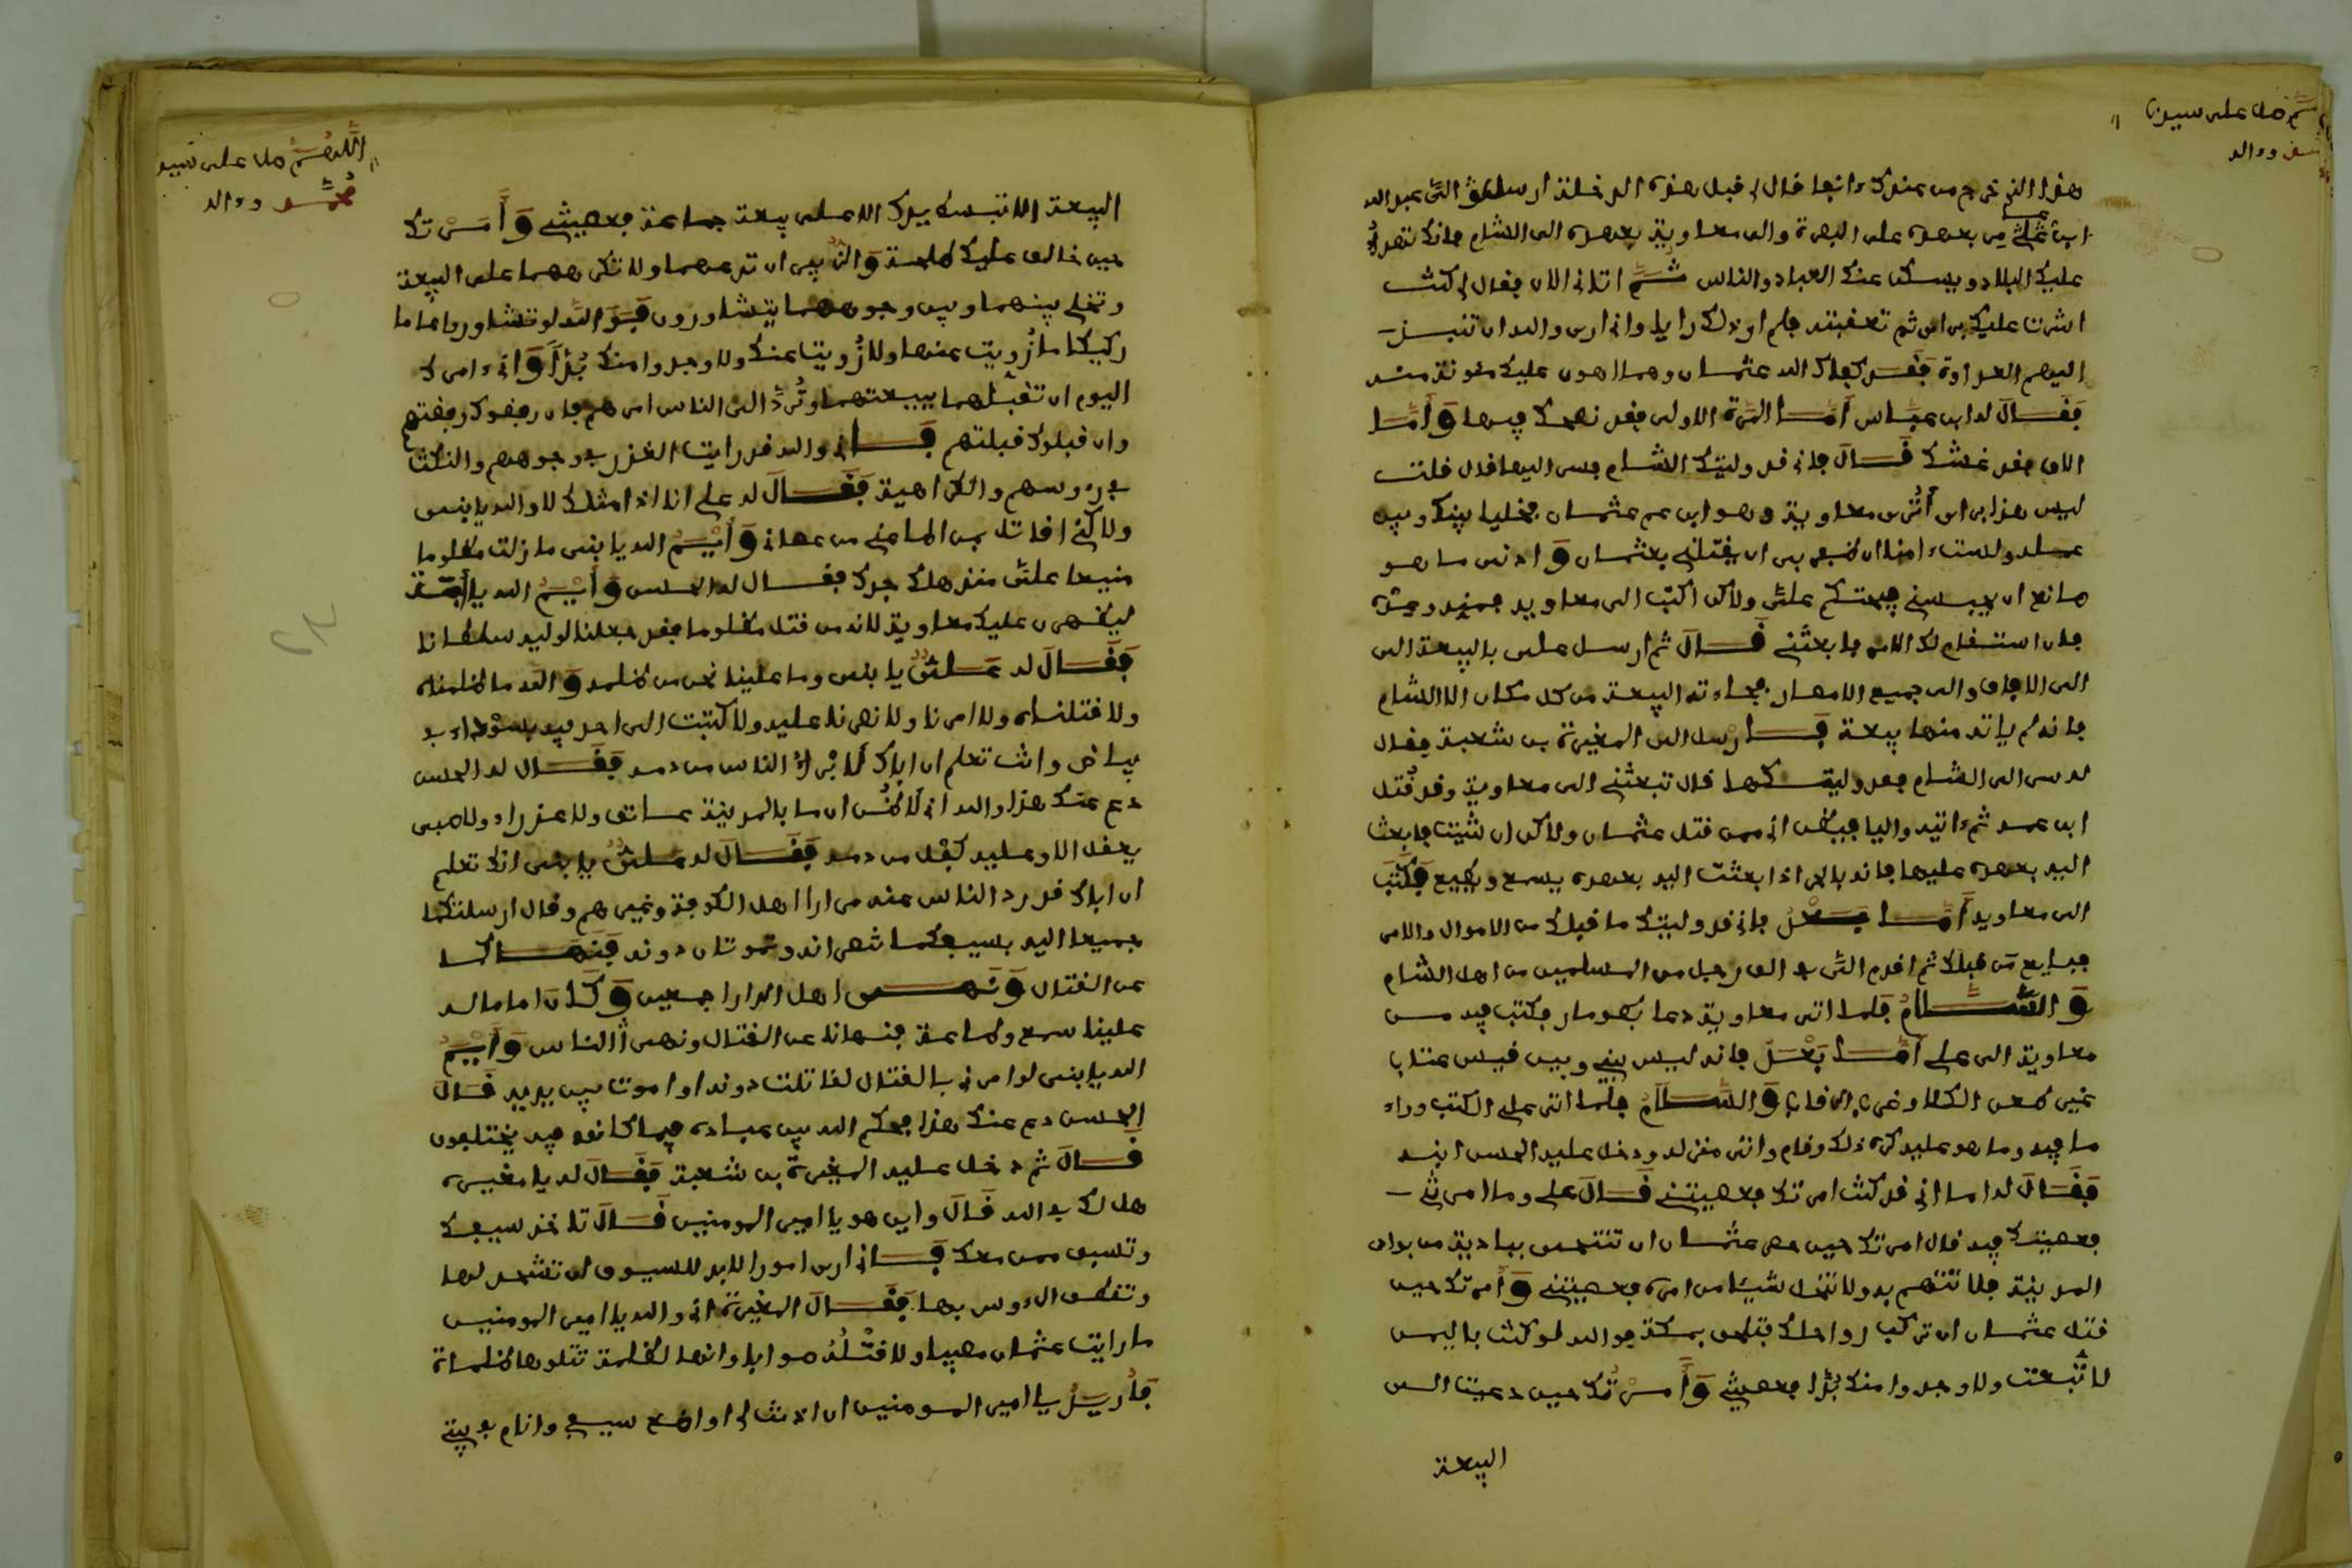 اللهم صل على سيدنا
محمد وءاله
هذا الذي خرج من عندك ءانفا قال لي قبل هذه الدخلة ارسل الى عبد الله
ابن عامر بعهده على البصرة والى معاوية بعهده الى الشام فانك تهدئ
عليك البلاد ويسكن عنك العباد والناس ثم اتاني الان فقال لي كنت
اشرت عليك براي ثم تعقبته فلم ار ذلك رايا واني ارى والله ان تنبذ
اليهم العداوة فقد كفاك الله عثمان وهما اهون عليك مئونة منه
فقال له ابن عباس اما المرة الاولى فقد نصحك فيها واما
الان فقد غشك قال فاني قد وليتك الشام فسر اليها قال قلت
ليس هذا براي اترى معاوية وهو ابن عم عثمان مخليا بيني وبين
عمله ولست ءامنا ان ظفر بي ان يقتلني بعثمان وادنى ما هو
صانع ان يحبسني فيحتكم علي ولاكن اكتب الى معاوية فمنيه وعده
فان استقام لك الامر فابعثني قال ثم ارسل علي بالبيعة الى
الى الافاق والى جميع الامصار فجاءته البيعة من كل مكان الا الشام
فانه لم ياته منها بيعة فارسل الى المغيرة بن شعبة فقال
له سر الى الشام فقد وليتكها قال تبعثني الى معاوية وقد قتل
ابن عمه ثم ءاتيه واليا فيظن اني ممن قتل عثمان ولاكن ان شئت فابعث
اليه بعهده عليها فانه بالحرى اذا بعثت اليه بعهده يسمع ويطيع فكتب
الى معاوية اما بعد فاني قد وليتك ما قبلك من الاموال والامر
فبايع من قبلك ثم اقدم الي في الف رجل من المسلمين من اهل الشام
والسلام فلما اتى معاوية دعا بطومار فكتب فيه من
معاوية الى علي اما بعد فانه ليس بيني وبين قيس عتاب
غير طعن الكلا وضرب الرقاب والسلام فلما اتى علي الكتب وراى
ما فيه وما هو عليه كره ذلك وقام واتى منزله ودخل عليه الحسن ابنه
فقال له اما اني قد كنت امرتك فعصيتني قال علي وما امرتني
فعصيتك فيه قال امرتك حين حصر عثمان ان تتنحى بناحية من بوادي
المدينة فلا تتهم به ولا تنحل شيئا من امره فعصيتني وامرتك حين
قتل عثمان ان تركب رواحلك فتلحق بمكة فوالله لو كنت باليمن
لاتبعت ولا وجدوا منك بدا فعصيتني وامرتك حين دعيت الى
البيعة
اللهم صل على سيد
محمد وءاله
البيعة الا تبسط يدك الا على بيعة جماعة فعصيتني وامرتك
حين خالف عليك طلحة والزبير ان تدعهما ولا تكرههما على البيعة
وتخلي بينهما وبين وجوههما يتشاورون فوالله لو تشاوروا عاما
ركيكا ما زويت عنها ولا زويت عنك ولا وجدوا منك بدا واني ءامرك
اليوم ان تقيلهما بيعتهما وترد الى الناس امرهم فان رفضوك رفضتهم
وان قبلوك قبلتهم فاني والله قد رايت الغدر في وجوههم والنكث
في رءوسهم والكراهية فقال له علي انا اذا مثلك لا والله يا بني
ولاكني اقاتل بمن اطاعني من عصاني وايم الله يا بني ما زلت مظلوما
مبغيا علي منذ هلك جدك فقال له الحسن وايم الله يا ابت
ليظهرن عليك معاوية لانه من قتل مظلوما فقد جعلنا لوليه سلطانا
فقال له علي يا بني وما علينا نحن من ظلمه والله ما ظلمناه
ولا قتلناه ولا امرنا ولا نصرنا عليه ولا كتبت الى احد فيه بسوداء في
بياض وانت تعلم ان اباك ابرا الناس من دمه فقال له الحسن
دع عنك هذا والله اني لاظن ان ما بالمدينة عاتق ولا عذراء ولا صبي
يعقل الا وعليه كفل من دمه فقال له علي يا بني انك تعلم
ان اباك قد رد الناس عنه مرارا اهل الكوفة وغيرهم وقال ارسلتكما
جميعا اليه بسيفكما تنصرانه وتموتان دونه فنهاكما
عن القتال ونهى اهل الدار اجمعين وكان اماما له
علينا سمع وطاعة فنهانا عن القتال ونهى الناس وايم
الله يا بني لو امرني بالقتال لقاتلت دونه او اموت بين يديه قال
الحسن دع عنك هذا فيحكم الله بين عباده فيما كانوا فيه يختلفون
قال ثم دخل عليه المغيرة بن شعبة فقال له يا مغيرة
هل لك في الله قال واين هو يا امير المومنين قال تاخذ سيفك
وتسبق ممن معك فاني ارى امورا لابد للسيوف ان تشحذ لها
وتقطف الرءوس بها فقال المغيرة اني والله يا امير المومنين
ما رايت عثمان مصيبا ولا قتله صوابا وانها لظلمة تتلوها ظلمات
فاريد يا امير المومنين ان اذنت لي ان اضع سيفي وانام في بيتي